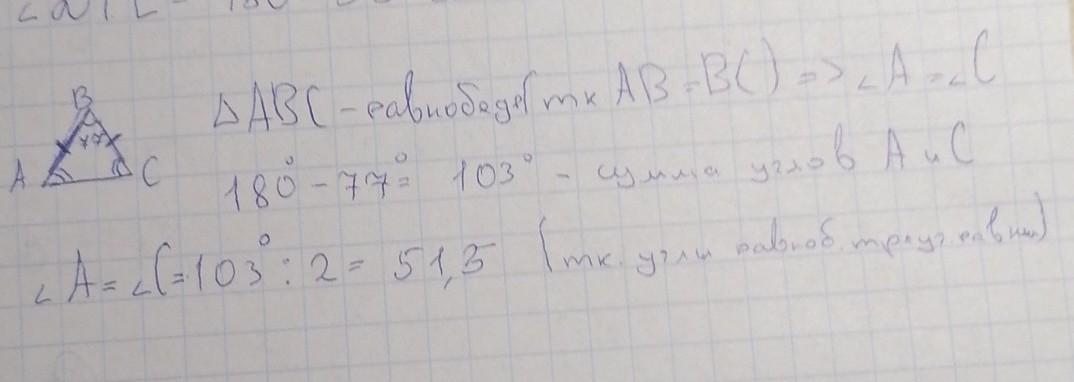 ΔABC - равнобедр (тк AB = BC) => ∠A = ∠C
B
77
A C
180° - 77° = 103° - сумма углов A и C
∠A = ∠C = 103° : 2 = 51,5 (тк. углы равноб. треуг. равны)